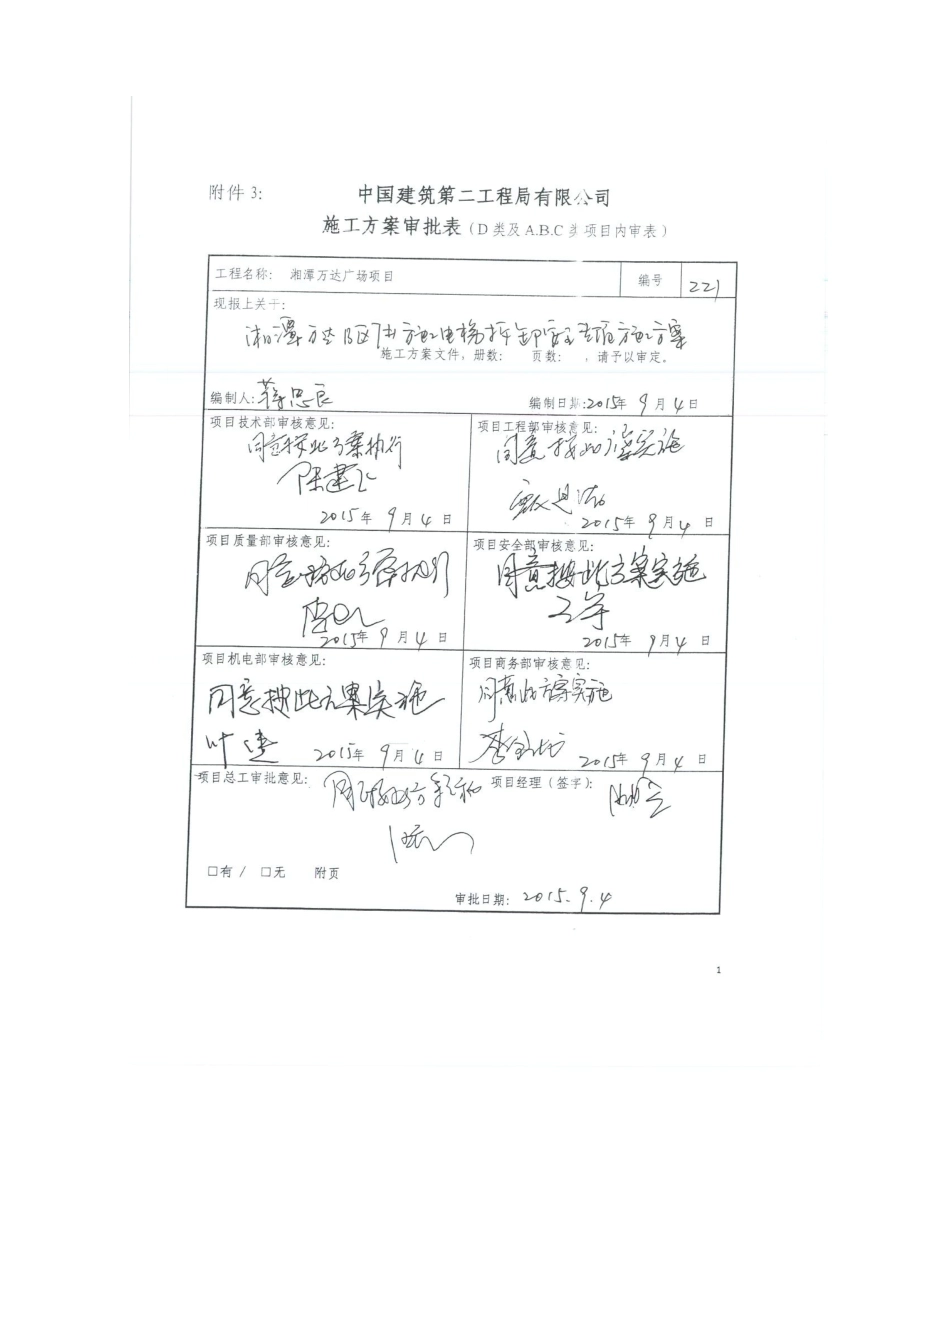 附件 3:
中国建筑第二工程局有限公司
施工方案审批表（D 类及 A.B.C 类 项目内审表）
工程名称: 湘潭万达广场项目 编号 221
现报上关于:
湘潭万达B区7#施工电梯拆卸安全专项施工方案
施工方案文件，册数: 页数: ，请予以审定。
编制人: 蒋忠良 编制日期:2015年 9月4日
项目技术部审核意见: 项目工程部审核意见:
同意按此方案执行 同意按此方案实施
陈建飞
2015年 9月4日 2015年 9月4日
项目质量部审核意见: 项目安全部审核意见:
同意按此方案执行 同意按此方案实施
2015年 9月4日 2015年 9月4日
项目机电部审核意见: 项目商务部审核意见:
同意按此方案实施 同意此方案实施
叶
2015年 9月4日 2015年 9月4日
项目总工审批意见: 项目经理（签字）:
□有 / □无 附页
审批日期: 2015.9.4
1